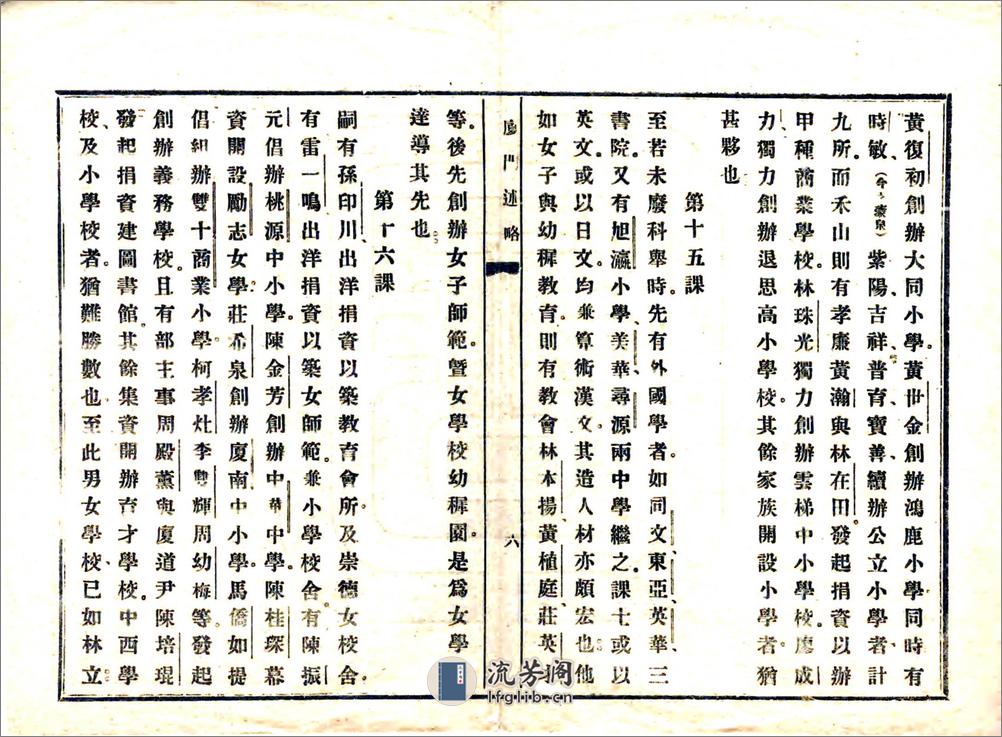 黃復初創辦大同小學。黃世金創辦鴻鹿小學同時有
時敏、紫陽、吉祥、普育、寶善、續辦公立小學者計
九所。而禾山則有孝廉黃瀚與林在田發起捐資以辦
甲種商業學校。林珠光獨力創辦雲梯中小學校。廖成
力獨力創辦退思高小學校。其餘家族開設小學者。猶
甚夥也
第十五課
至若未廢科舉時。先有外國學者。如同文、東亞、英華、三
書院。又有旭瀛小學。美華尋源兩中學繼之。課士或以
英文。或以日文。均兼算術漢文。其造人材亦頗宏也。他
如女子與幼穉教育。則有教會林本揚、黃植庭、莊英
廈門述略
六
等。後先創辦女子師範。暨女學校幼穉園。是爲女學
達導其先也。
第十六課
嗣有孫印川出洋捐資以築教育會所。及崇德女校舍。
有雷一鳴出洋捐資以築女師範。兼小學校舍。有陳振
元倡辦桃源中小學。陳金芳創辦中華中學。陳桂琛募
資開設勵志女學。莊希泉創辦廈南中小學。馬僑如提
倡組辦雙十商業小學。柯孝灶、李雙輝、周幼梅等發起
創辦義務學校。且有部主事周殿薰與廈道尹陳培琨
發起捐資建圖書館。其餘集資開辦育才學校。中西學
校、及小學校者。猶難勝數也。至此男女學校。已如林立
流芳閣
lfglib.cn